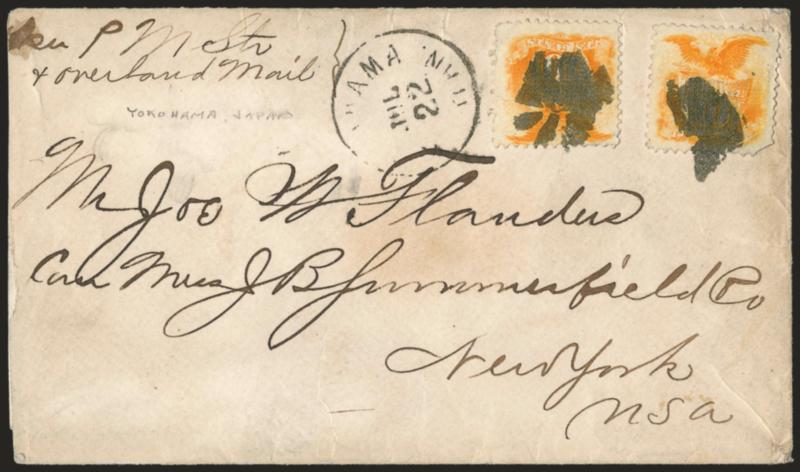 Per P M Str
& overland Mail
YOKOHAMA, JAPAN
HAMA
JUL
22
Mr Jos W Flanders
Care Mess J B Summerfield Co
New York
USA